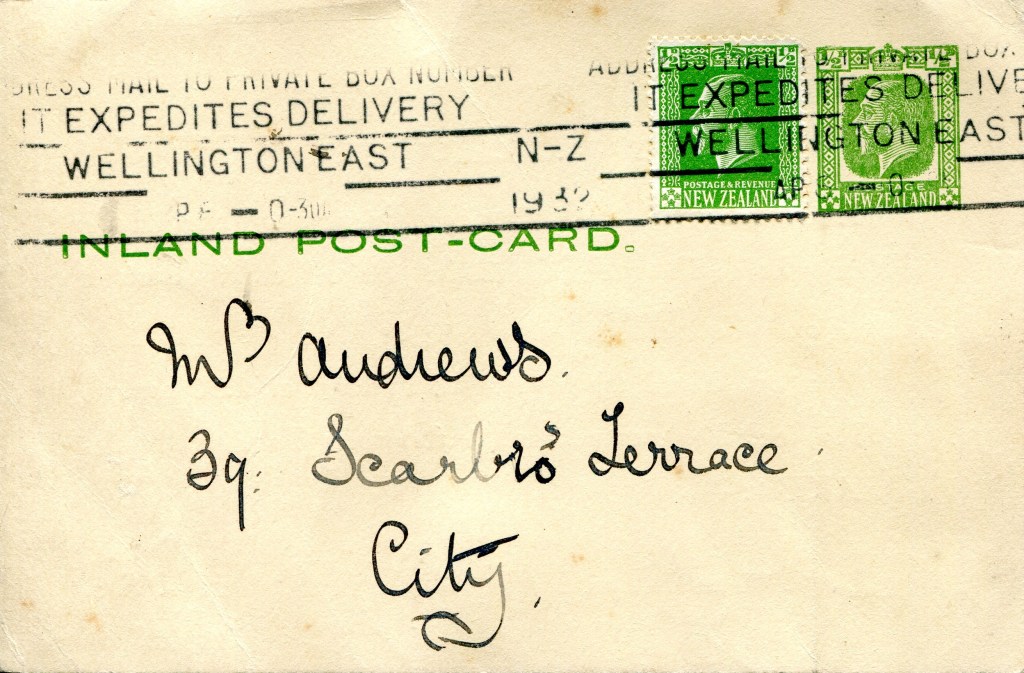 DRESS MAIL TO PRIVATE BOX NUMBER
IT EXPEDITES DELIVERY
WELLINGTON EAST N-Z
1932
IT EXPEDITES DELIVE
WELLINGTON EAST
AP
½ ½
POSTAGE & REVENUE
NEW ZEALAND
½ ½
POSTAGE
NEW ZEALAND
INLAND POST-CARD.
Mrs Andrews.
39. Scarbro' Terrace
City.